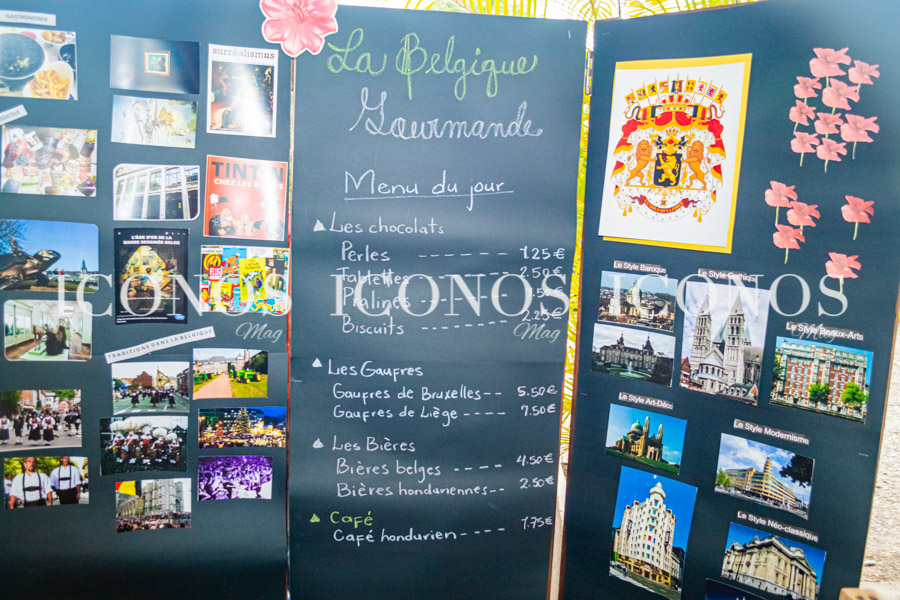 GASTRONOMIE
surréalismus
TINTIN
L'ÂGE D'OR DE LA
BANDE DESSINÉE BELGE
TRADITIONS DANS LA BELGIQUE
La Belgique
Gourmande
Menu du jour
Les chocolats
Perles ------- 1.25€
Tablettes 2.50€
Pralines
Biscuits ------- 2.25€
Les Gaufres
Gaufres de Bruxelles-- 5.50€
Gaufres de Liège---- 7.50€
Les Bières
Bières belges ---- 4.50€
Bières honduriennes-- 2.50€
Café
Café hondurien---- 1.75€
Le Style Baroque
Le Style Gothique
Le Style Beaux-Arts
Le Style Art-Déco
Le Style Modernisme
Le Style Néo-classique
ICONOS ICONOS ICONOS
Mag Mag Mag